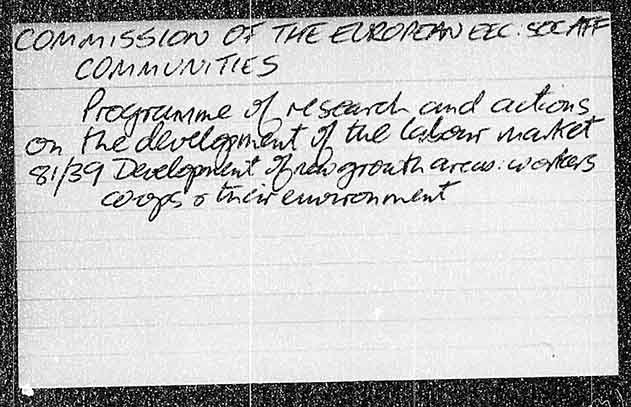 COMMISSION OF THE EUROPEAN EEC: SOC AFF
COMMUNITIES
Programme of research and actions
on the development of the labour market
81/39 Development of new growth areas: workers
co-ops & their environment